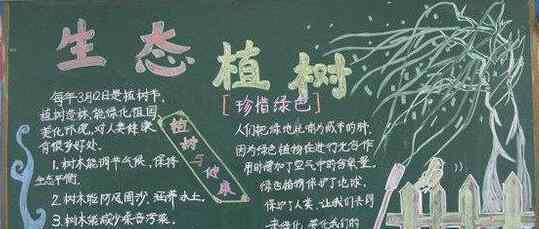 生态植树
每年3月12日是植树节,
植树造林,能绿化祖国
美化环境,对人类健康
有很多好处。
1. 树木能调节气候,保持
生态平衡。
2. 树木能防风固沙,涵养水土
3. 树木能减少噪音污染。
植树与健康
[珍惜绿色]
人们把绿地比喻为城市的肺,
因为绿色植物在进行光合作
用时增加了空气中的含氧量,
绿色植物保护了地球,
保护了人类,让我们大家
来绿化、美化我们的